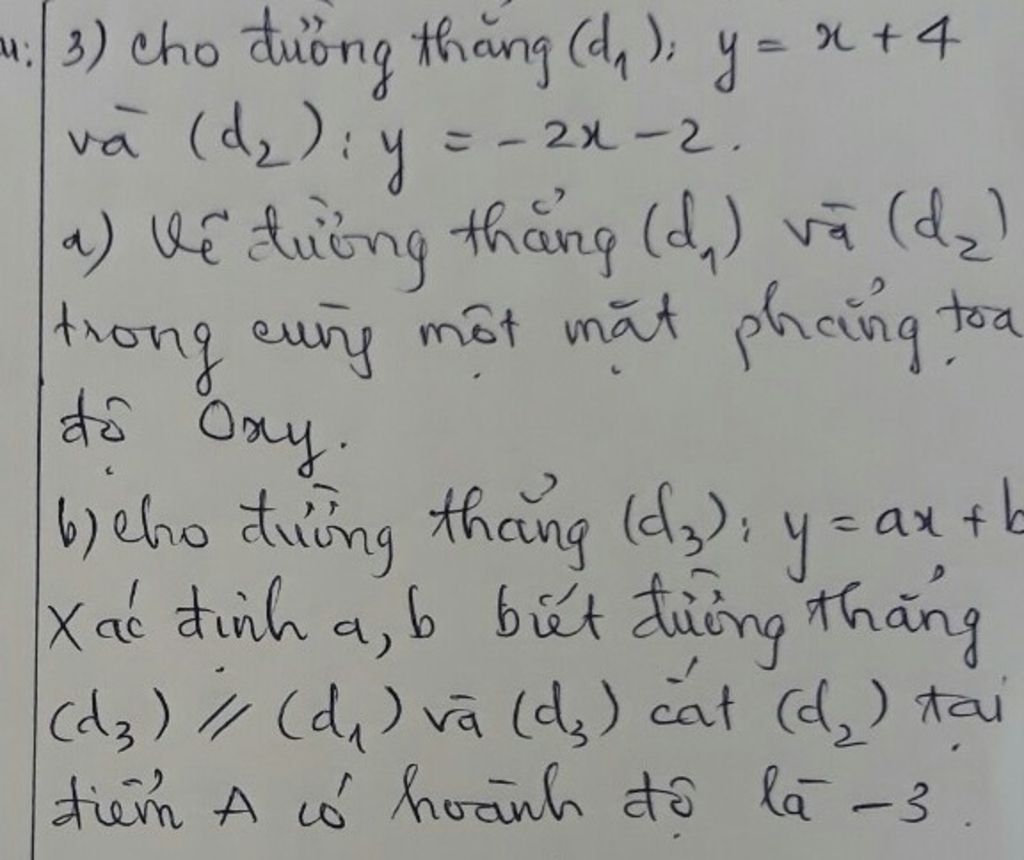 3) Cho đường thẳng (d₁): y = x + 4
và (d₂): y = -2x - 2.
a) Vẽ đường thẳng (d₁) và (d₂)
trong cùng một mặt phẳng tọa
độ Oxy.
b) Cho đường thẳng (d₃): y = ax + b
Xác định a, b biết đường thẳng
(d₃) // (d₁) và (d₃) cắt (d₂) tại
điểm A có hoành độ là -3.